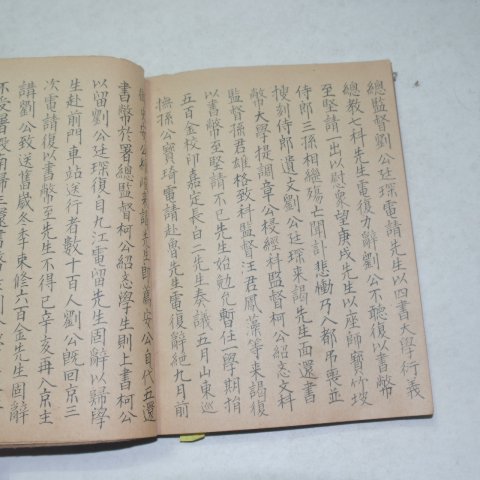 總監督劉公廷琛電請先生以四書大學衍義
總教七科先生電復力辭劉公不聽復以書幣
至堅請一出以慰衆望庚戌先生以座師寶竹坡
侍郎三孫相繼殤亡聞訃悲慟乃入都弔喪並
搜刻侍郎遺文劉公廷琛來謁先生面還書
幣大學提調章公梫經科監督柯公紹忞文科
監督孫君雄格致科監督汪君鳳藻等來謁復
以書幣至堅請不已先生始勉允暫住一學期捐
五百金校印嘉定長白二先生奏議五月山東巡
撫孫公寶琦電請赴魯先生電復辭絕九月前
先生即薦安公自代五還
書幣於署總監督柯公紹忞學生則上書柯公
以留劉公廷琛復自九江電留先生固辭以歸學
生赴前門車站送行者數十百人劉公既回京三
次電請復以書幣至先生不得已辛亥再入京主
講劉公致送舊歲冬季束修六百金先生固辭